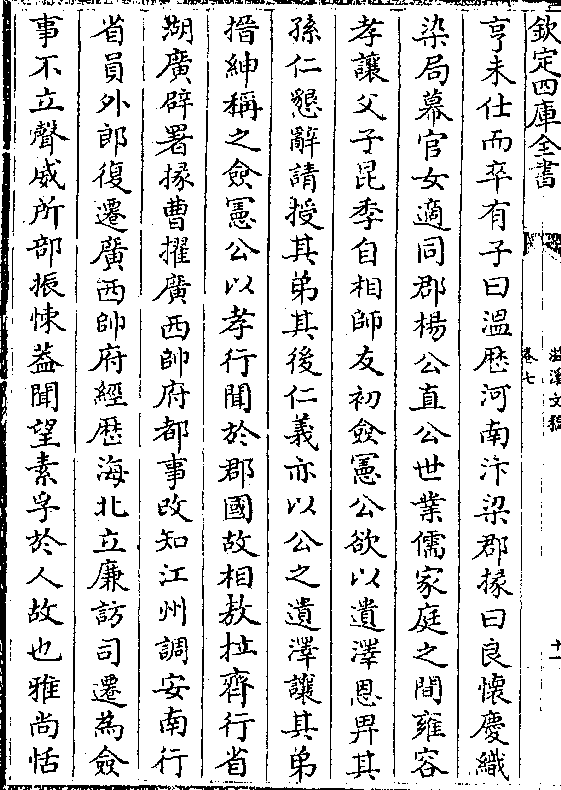 欽定四庫全書
滋溪文稿
卷七
十一
亨未仕而卒有子曰溫歴河南汴梁郡掾曰良懷慶織
染局幕官女適同郡楊公直公世業儒家庭之間雍容
孝讓父子昆季自相師友初僉憲公欲以遺澤恩畀其
孫仁懇辭請授其弟其後仁義亦以公之遺澤讓其弟
搢紳稱之僉憲公以孝行聞於郡國故相敖拉齊行省
湖廣辟署掾曹擢廣西帥府都事改知江州調安南行
省員外郎復遷廣西帥府經歴海北立廉訪司遷為僉
事不立聲威所部振悚葢聞望素孚於人故也雅尚恬